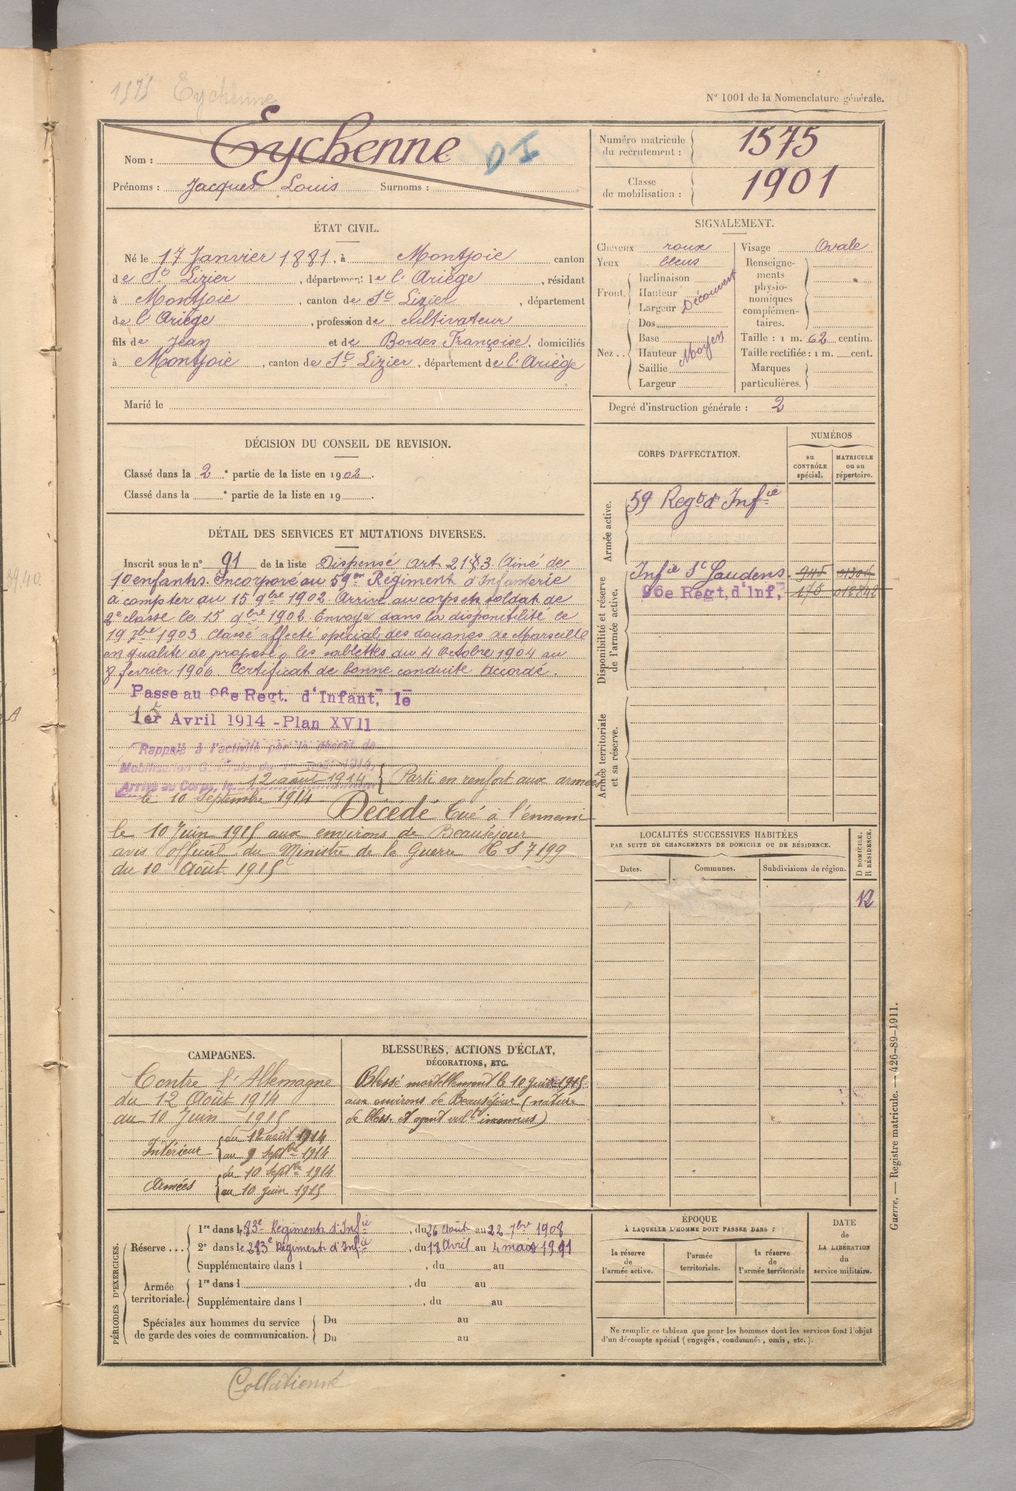 1575 Eychenne
N° 1001 de la Nomenclature générale.
Nom : Eychenne
DI
Prénoms : Jacques Louis Surnoms :
Numéro matricule du recrutement : 1575
Classe de mobilisation : 1901
ÉTAT CIVIL.
Né le 17 Janvier 1881, à Montjoie canton
de St Lizier, département de l'Ariège, résidant
à Montjoie, canton de St Lizier, département
de l'Ariège, profession de cultivateur
fils de Jean et de Bordes Françoise, domiciliés
à Montjoie, canton de St Lizier, département de l'Ariège
Marié le
SIGNALEMENT.
Cheveux roux
Yeux bleus
Front. Inclinaison
Hauteur
Largeur
Découvert
Nez. Dos
Base
Hauteur
Saillie
Largeur
Moyen
Visage Ovale
Renseignements physionomiques complémentaires.
Taille : 1 m. 62 centim.
Taille rectifiée : 1 m. cent.
Marques particulières.
Degré d'instruction générale : 2
DÉCISION DU CONSEIL DE REVISION.
Classé dans la 2e partie de la liste en 1902.
Classé dans la e partie de la liste en 19 .
DÉTAIL DES SERVICES ET MUTATIONS DIVERSES.
Inscrit sous le n° 91 de la liste Dispensé art. 21 § 3 Ainé de
10 enfants. Incorporé au 59me Régiment d'Infanterie
à compter du 15 9bre 1902. Arrivé au corps et soldat de
2e classe le 15 9bre 1902. Envoyé dans la disponibilité le
19 7bre 1903. Classé affecté spécial des douanes de Marseille
en qualité de préposé à les sablettes du 4 octobre 1904 au
8 février 1906. Certificat de bonne conduite accordé.
Passé au 96e Régt. d'Infant. le
1er Avril 1914 - Plan XVII
Rappelé à l'activité par le décret de
Mobilisation Générale du 1er Août 1914,
Arrivé au Corps, le 12 août 1914 Parti en renfort aux armées
le 10 Septembre 1914 Décédé Tué à l'ennemi
le 10 Juin 1915 aux environs de Beauséjour
avis officiel du Ministre de la Guerre C S 7199
du 10 Août 1915
CORPS D'AFFECTATION.
NUMÉROS
au CONTRÔLE spécial.
MATRICULE ou au répertoire.
Armée active.
59 Regt d'Infie
Disponibilité et réserve de l'armée active.
Infie St Gaudens 945
96e Régt. d'Inf. 170
Armée territoriale et sa réserve.
LOCALITÉS SUCCESSIVES HABITÉES
PAR SUITE DE CHANGEMENTS DE DOMICILE OU DE RÉSIDENCE.
Dates. Communes. Subdivisions de région. D DOMICILE. R RÉSIDENCE.
12
CAMPAGNES.
Contre l'Allemagne
du 12 Août 1914
au 10 Juin 1915
Intérieur du 12 août 1914
au 9 Septbre 1914
Armées du 10 Septbre 1914
au 10 juin 1915
BLESSURES, ACTIONS D'ÉCLAT,
DÉCORATIONS, ETC.
Blessé mortellement le 10 Juin 1915
aux environs de Beauséjour (nature
de bless. et agent vult inconnus)
PÉRIODES D'EXERCICES.
Réserve... 1re dans le 83e Régiment d'Infie, du 26 Août au 22 7bre 1908
2e dans le 283e Régiment d'Infie, du 18 Avril au 4 mars 1911
Supplémentaire dans l , du au
Armée territoriale. 1re dans l , du au
Supplémentaire dans l , du au
Spéciales aux hommes du service de garde des voies de communication. Du au
Du au
ÉPOQUE
À LAQUELLE L'HOMME DOIT PASSER DANS :
la réserve de l'armée active.
l'armée territoriale.
la réserve de l'armée territoriale
DATE de LA LIBÉRATION du service militaire.
Ne remplir ce tableau que pour les hommes dont les services font l'objet
d'un décompte spécial (engagés, condamnés, omis, etc.).
Guerre. — Registre matricule. — 426-89-1911.
Collationné